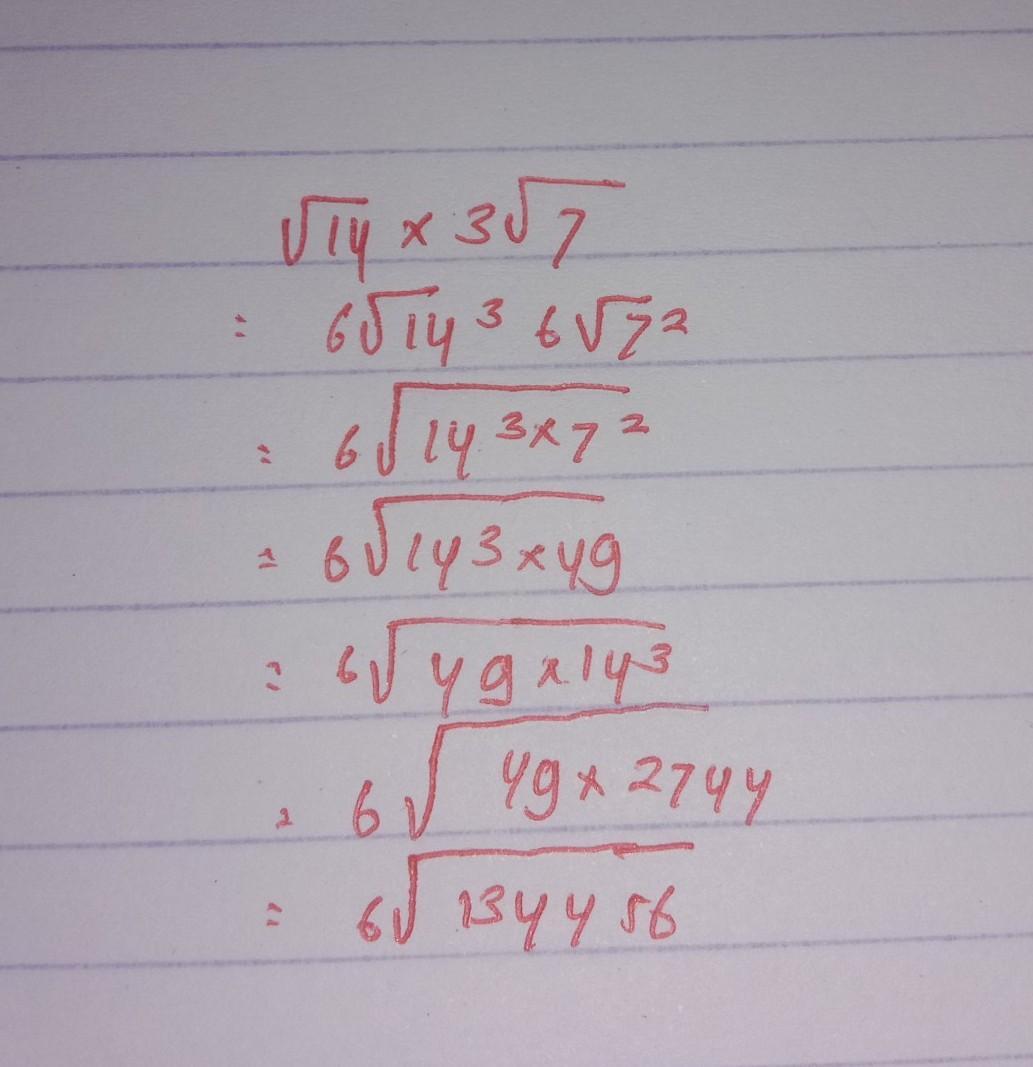 √14 × 3√7
= 6√14³ 6√7²
= 6√14³×7²
= 6√14³×49
= 6√49×14³
= 6√49×2744
= 6√134456